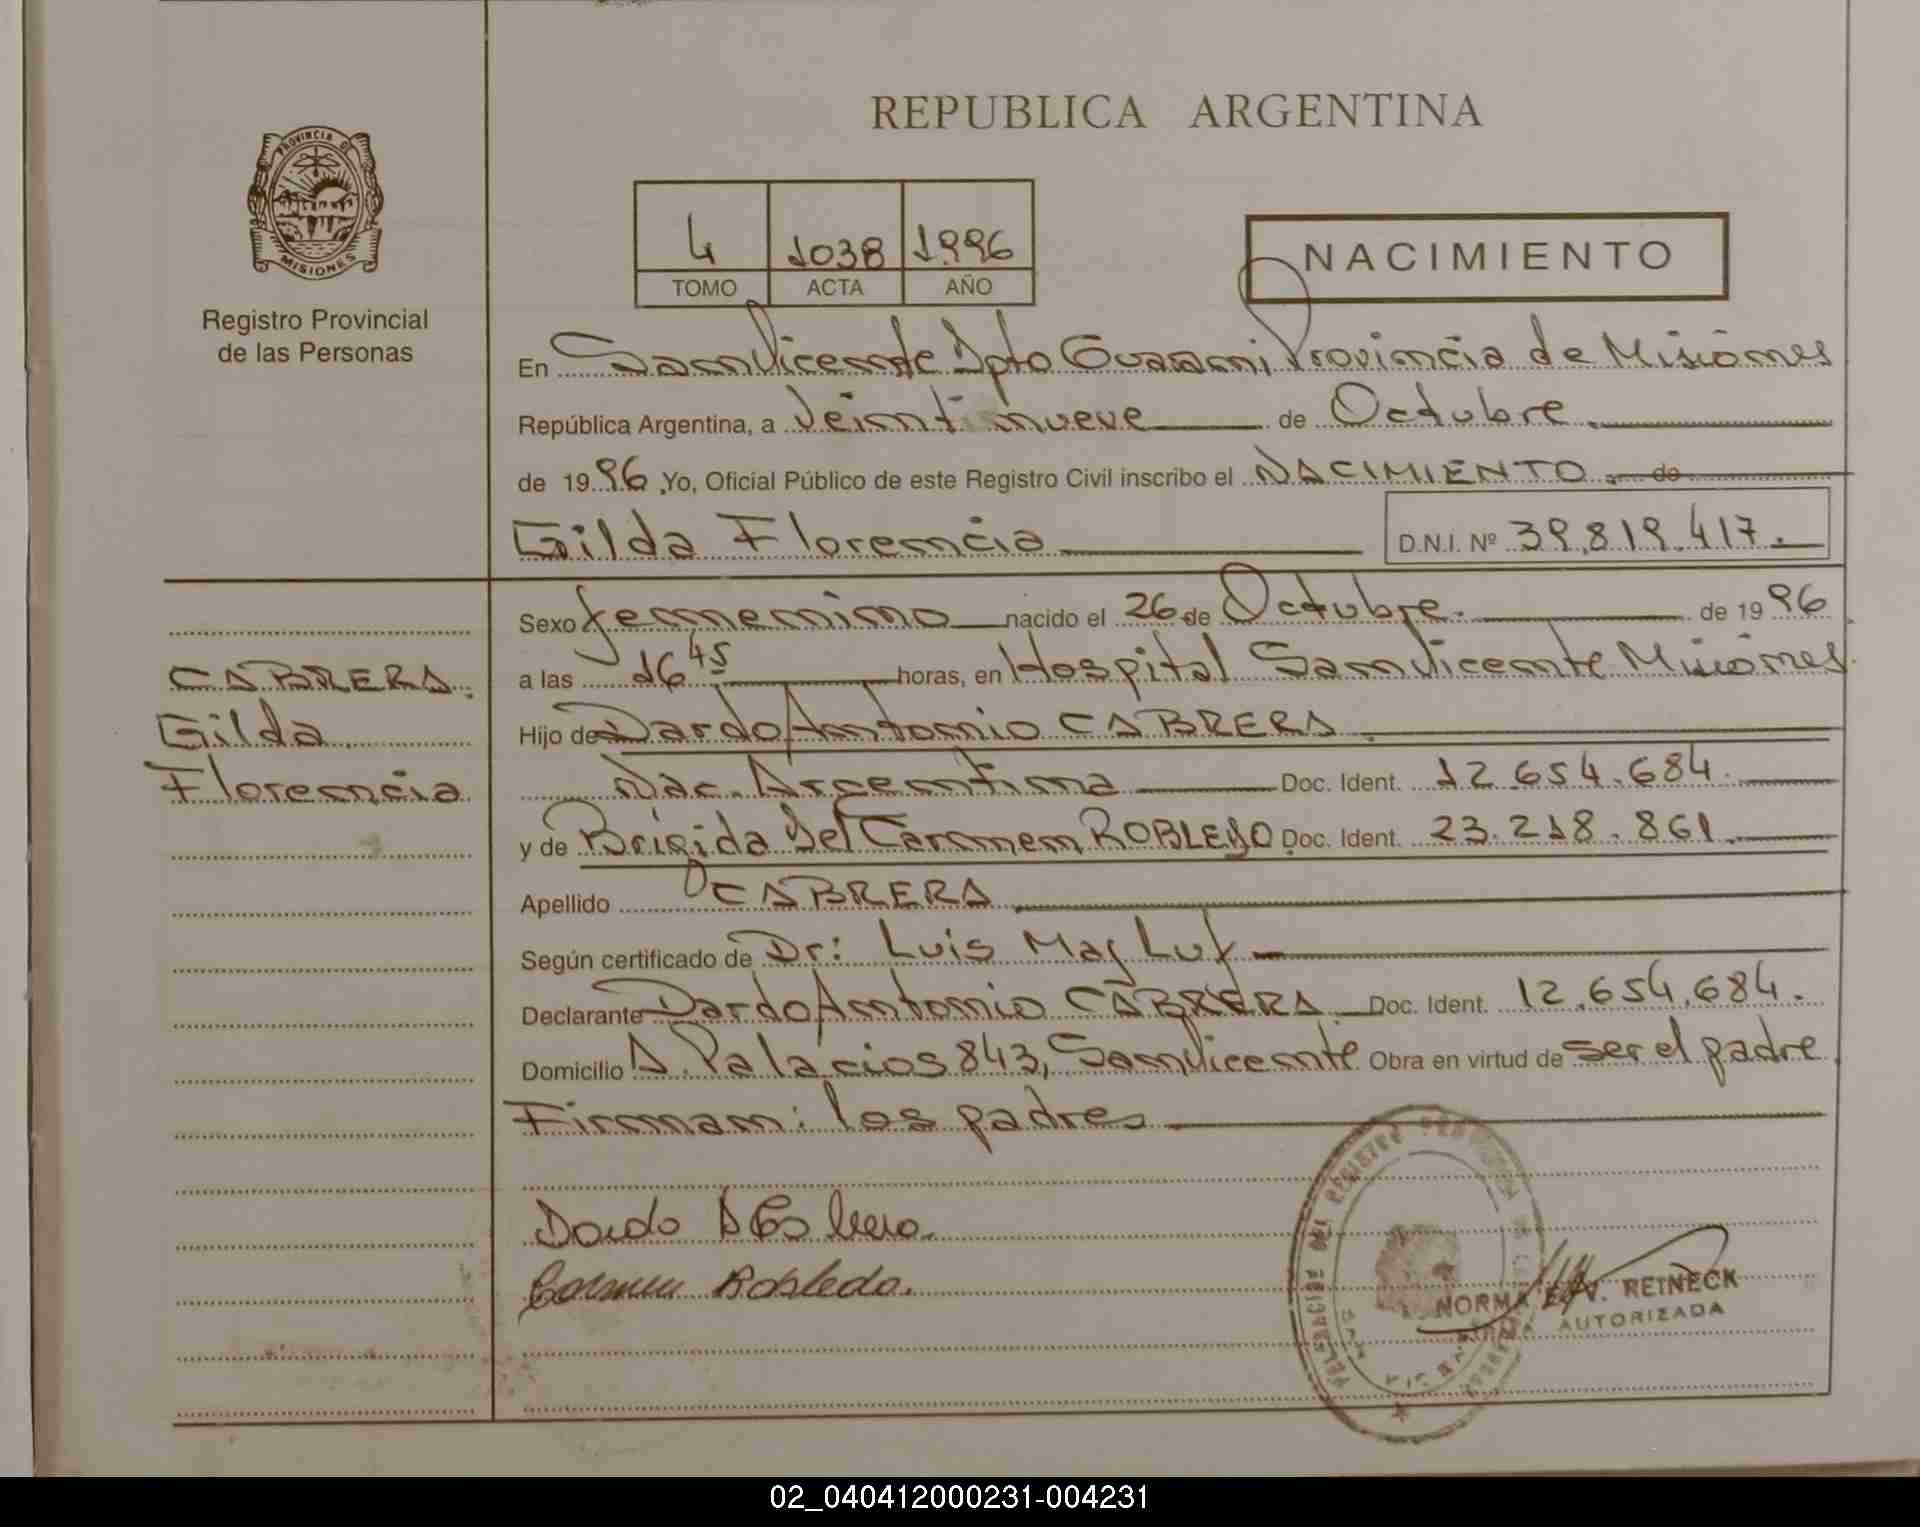 REPUBLICA ARGENTINA
PROVINCIA DE
MISIONES
Registro Provincial
de las Personas
4 1038 1996
TOMO ACTA AÑO
NACIMIENTO
En San Vicente Dpto Guarani, Provincia de Misiones
República Argentina, a Veinti nueve de Octubre
de 1996 Yo, Oficial Público de este Registro Civil inscribo el NACIMIENTO. de
Gilda Florencia D.N.I. Nº 39.819.417.
Sexo femenino nacido el 26 de Octubre. de 1996
a las 16 45 horas, en Hospital San Vicente Misiones.
Hijo de Dardo Antonio CABRERA.
Nac. Argentina Doc. Ident. 12.654.684.
y de Brigida Del Carmen ROBLEDO Doc. Ident. 23.218.861.
Apellido CABRERA
Según certificado de Dr: Luis Mag Luf
Declarante Dardo Antonio CABRERA. Doc. Ident. 12.654.684.
Domicilio A. Palacios 843, San Vicente. Obra en virtud de ser el padre.
Firman: los padres
CABRERA.
Gilda
Florencia
Dardo A Cabrera.
Carmen Robledo.
NORMA V. REINECK
AUTORIZADA
02_040412000231-004231